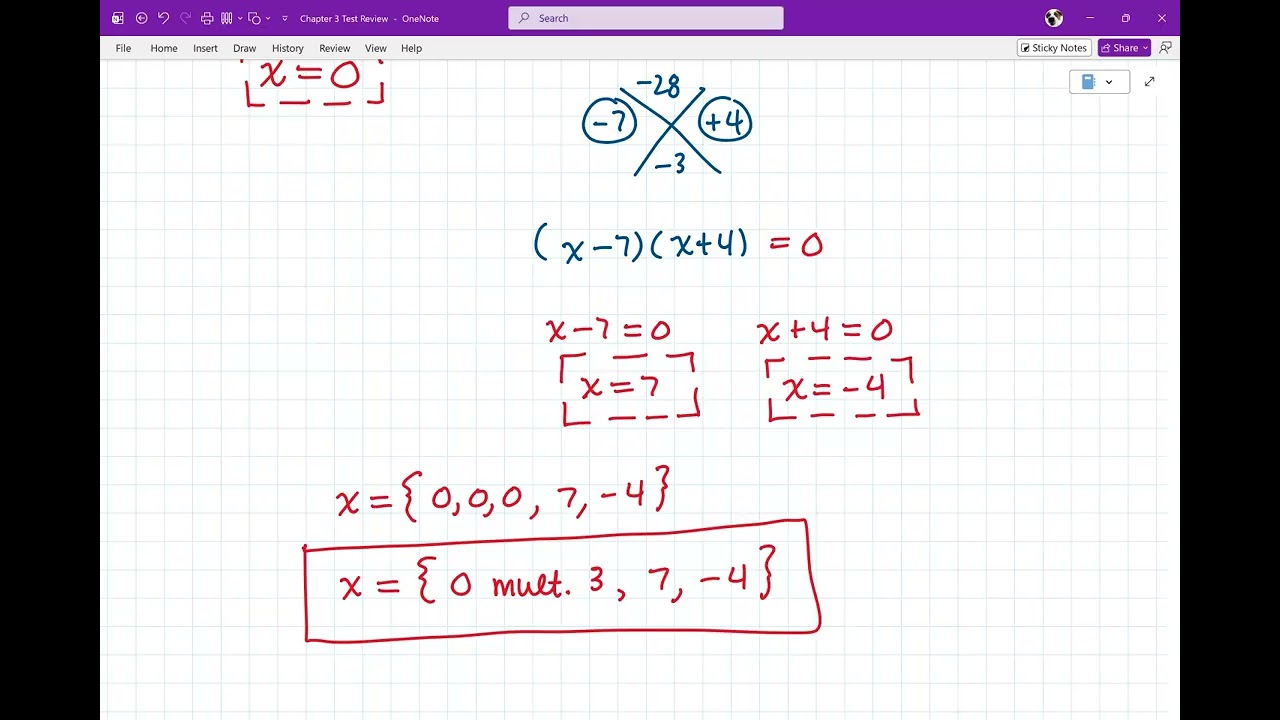 Chapter 3 Test Review - OneNote
Search
File Home Insert Draw History Review View Help
Sticky Notes Share
x = 0
-28
-7 +4
-3
(x-7)(x+4) = 0
x-7=0 x+4=0
x=7 x=-4
x={0,0,0,7,-4}
x={0 mult. 3, 7, -4}